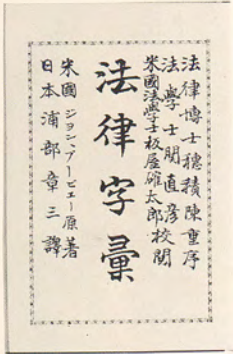 法律博士穗積陳重序
法學士関直彥
米國法學士板屋確太郎校閲
法律字彙
米國ジョン、ブービェー原著
日本浦部章三譯